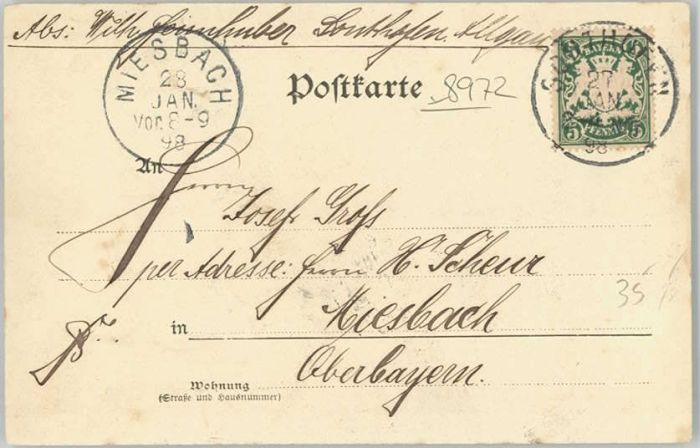 Abs: Wilh. Sonthofen. Allgäu
MIESBACH
28
JAN.
Vor. 8-9
98
Postkarte
8972
SONTHOFEN
27
JAN
98
BAYERN
5 PFENNIG 5
An
Herrn
Josef Groß
per Adresse: Herrn H. Scheur
in Miesbach
Oberbayern.
35
Wohnung
(Straße und Hausnummer)